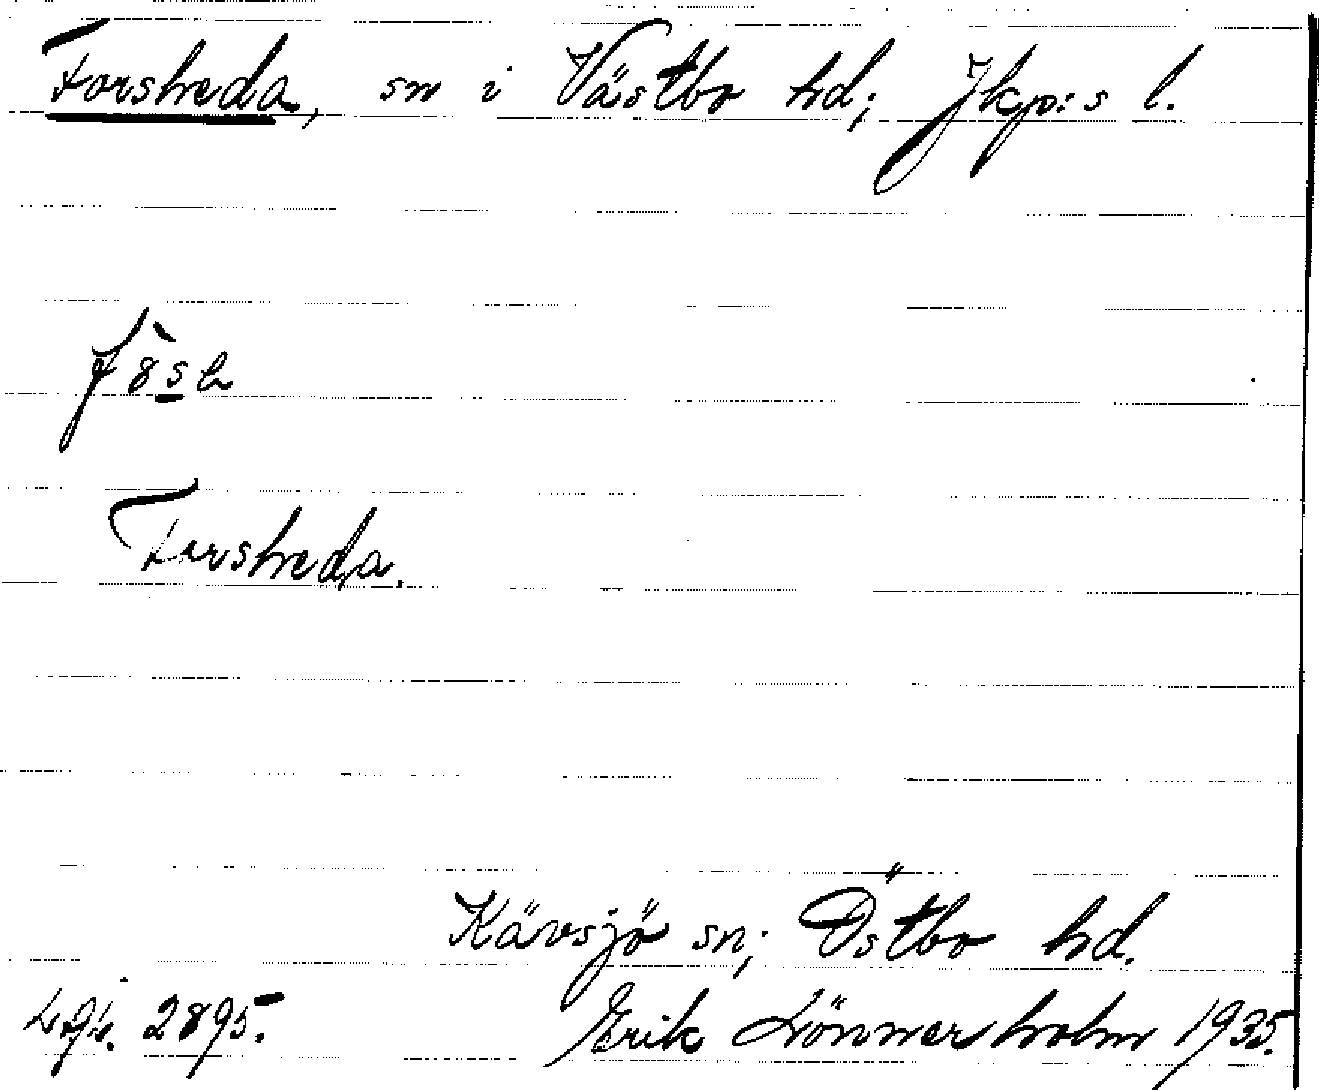 Forsheda, sn i Västbo hd; Jkp:s l.
Forsheda.
Kävsjö sn; Östbo hd.
2895. Erik Lönnerholm 1935.